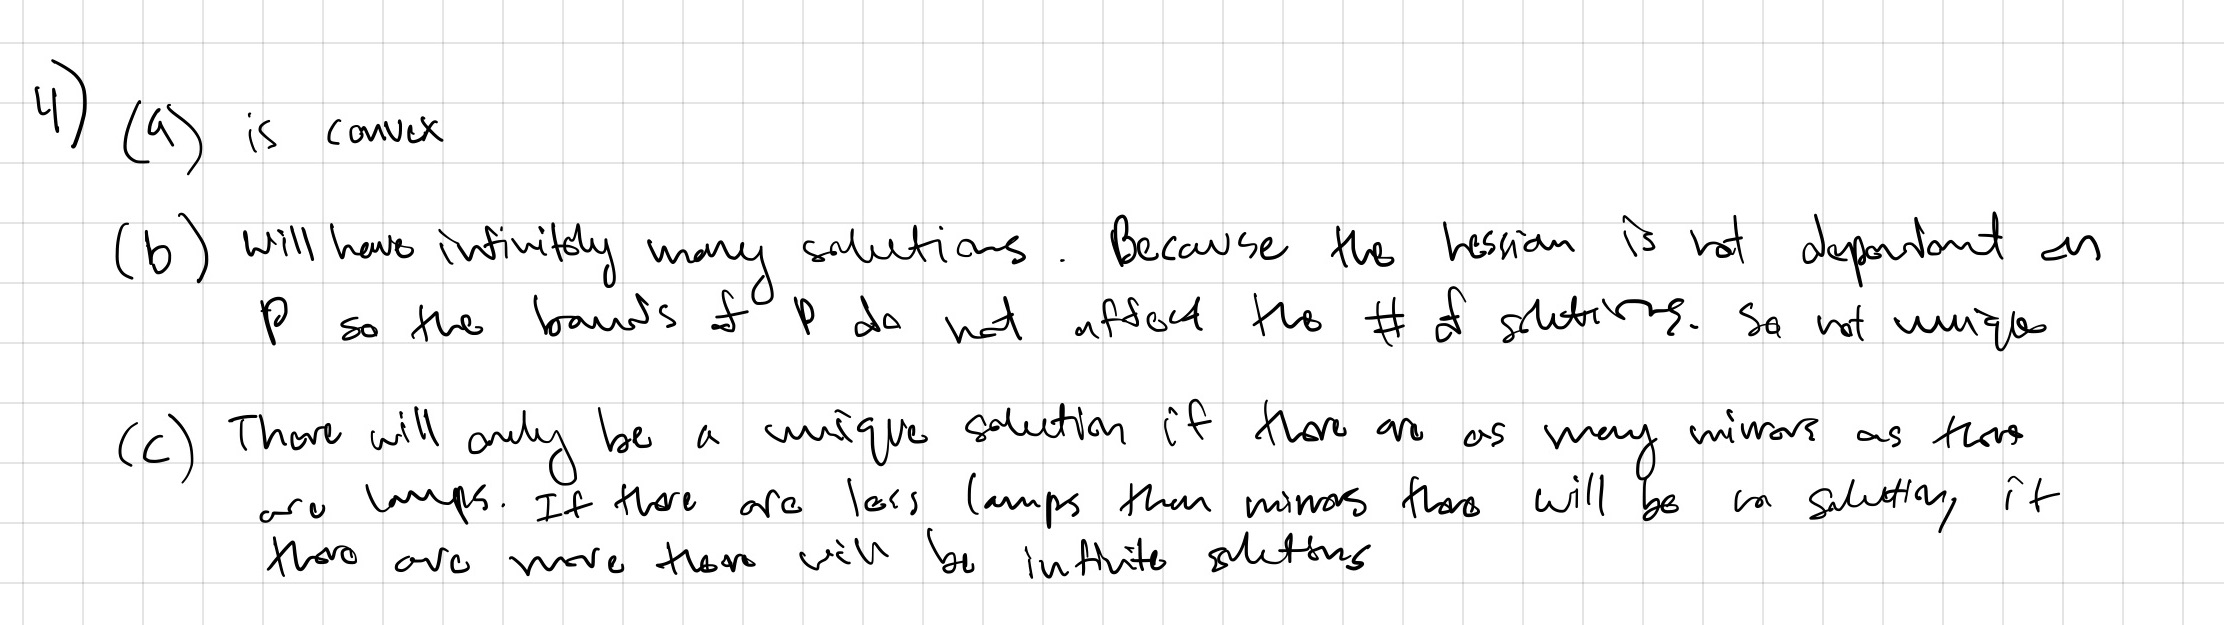 4) (a) is convex
(b) Will have infinitely many solutions. Because the hessian is not dependant on
P so the bounds of P do not affect the # of solutions. So not unique
(c) There will only be a unique solution if there are as many mirrors as there
are lamps. If there are less lamps than mirrors there will be no solution, if
there are more there will be infinite solutions